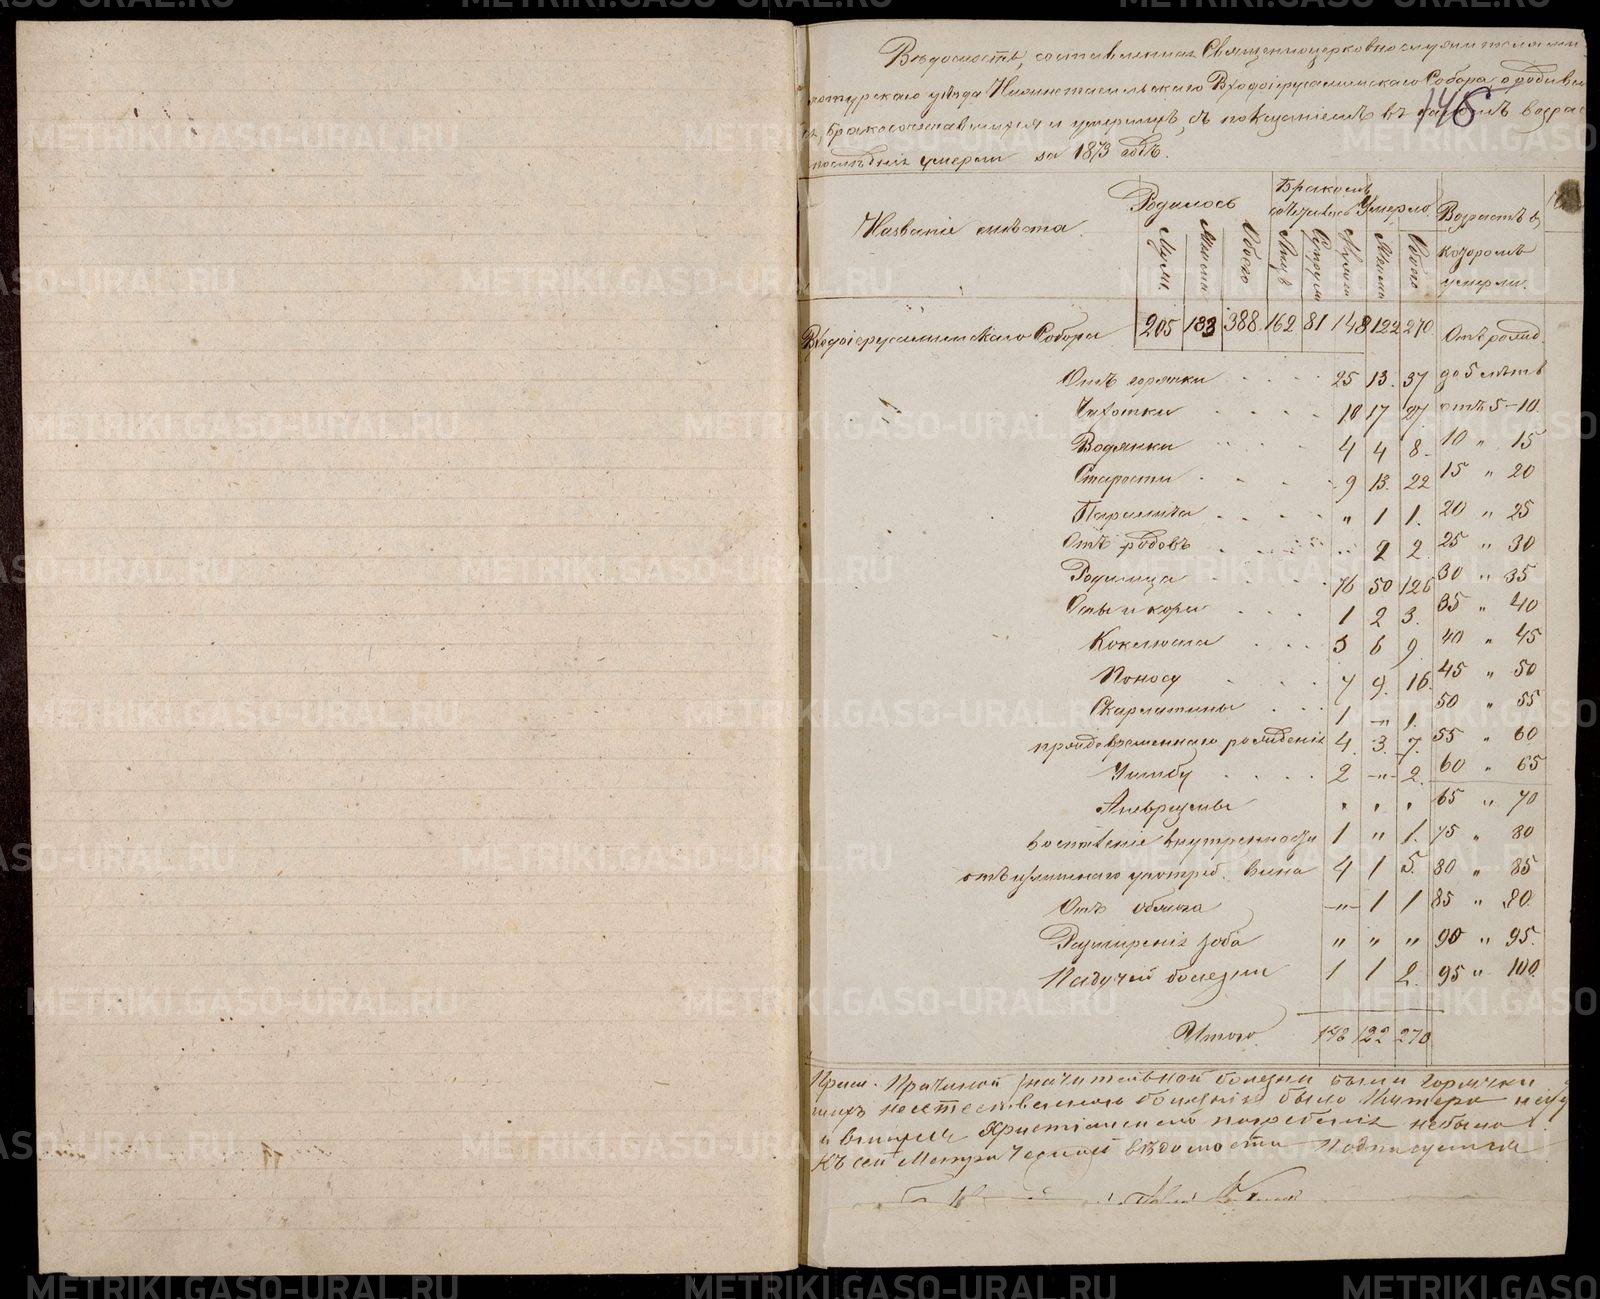 Вѣдомость, составленная Священноцерковнослужителями
уѣзда Нижнетагильскаго Входоіерусалимскаго Собора о родивших
ся, бракосочетавшихся и умершихъ, съ показаніемъ въ какомъ возрас
послѣдніе умерли за 1873 годъ.
145
Названіе мѣста.
Родилось
Бракомъ сочетались
Умерло
Возрастъ въ которомъ умерли.
Муж. Женска Обоего Лицъ Супруж Мужска Женска Обоего
Входоіерусалимскаго Собора 205 183 388 162 81 148 122 270 Отъ рожд.
Отъ горячки 25 13. 37 до 5 лѣтъ
Чахотки 10 17 27 отъ 5-10.
Водянки 4 4 8 10 " 15
Старости 9 13. 22 15 " 20
Паралича " 1 1. 20 " 25
Отъ родовъ " 2 2. 25 " 30
Родимца 76 50 126 30 " 35
Оспы и кори 1 2 3. 35 " 40
Коклюша 3 6 9 40 " 45
Поносу 7 9. 16. 45 " 50
Скарлатины 1 " 1. 50 " 55
преждевременнаго рожденія 4 3. 7. 55 " 60
Ушибу 2 " 2. 60 " 65
Аневризмы " " " 65 " 70
воспаленіе внутренности 1 " 1. 75 " 80
отъ излишняго употреб. вина 4 1 5. 80 " 85
Отъ обжога " 1 1 85 " 90.
Разширеніе зоба " " " 90 " 95.
Падучей болезни 1 1 2. 95 " 100.
Итого 148 122 270
Прим. Причиной значительной болезни были горячки
неестественною болезнію было
Христіанскаго погребенія небыло.
Къ сей Метрической вѣдомости подписуемся
METRIKI.GASO-URAL.RU